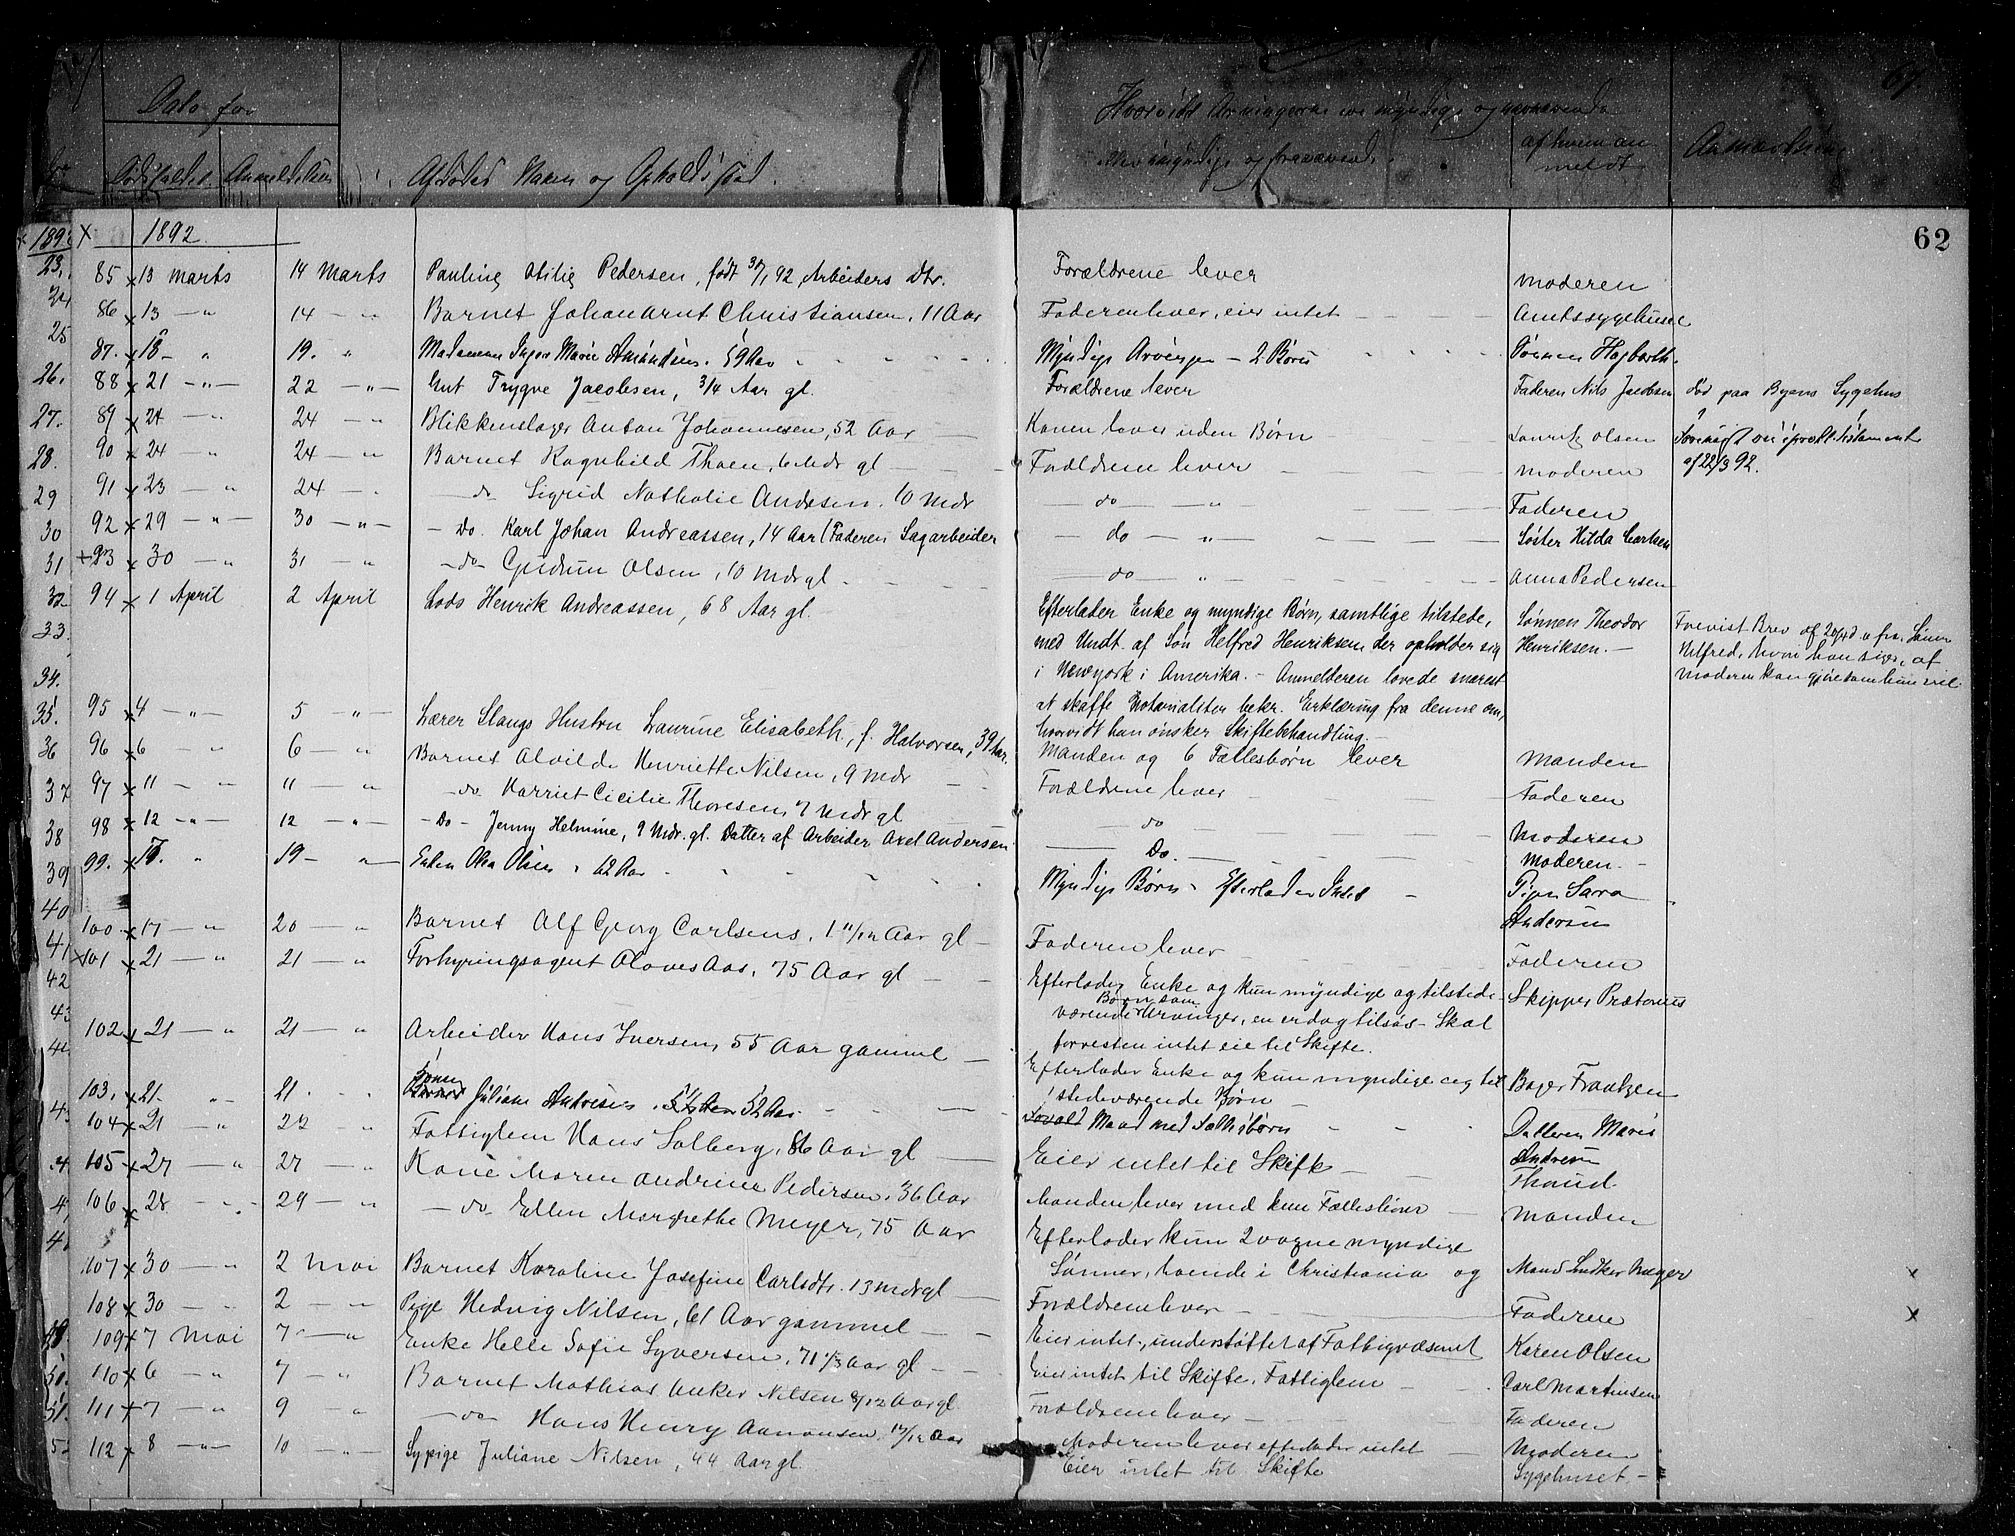 Dato for
Dødsfaldet Anmeldelsen
Afdødes Navn og Opholdssted.
Hvorvidt Arvingerne ere myndige og nærværende
eller umyndige og fraværende.
af hvem an
meldt.
Anmærkning
62
1892
85 13 Marts 14 Marts Pauline Otilie Pedersen, født 30/1 92, Arbeiders Dtr. Forældrene lever Moderen
86 13 - " 14 - " Barnet Johan Arnt Christiansen, 11 Aar Faderen lever, eier intet Amtssygehuset
87. 18 - " 19. " Madaman Inger Marie Amundsen. 59 Aar Myndige Arvinger - 2 Børn Sønnen Hagbarth.
88 21 - " - 22 - " - Gut Trygve Jacobsen, 3/4 Aar gl. Forældrene lever Faderen Nils Jacobsen død paa Byens Sygehus
89 24 - " 24 - " Blikkenslager Anton Johannesen, 52 Aar Konen lever uden Børn Lauritz Olsen
90 24 - " 24 - " Barnet Ragnhild Thoen, 6 Mdr gl Forældrene lever Moderen
af 22/3 92.
91 23 - " 24 - " - do Sigrid Nathalie Andersen. 10 Mdr - do - " Faderen
92 29 - " - 30 - " - - Do. Karl Johan Andreassen, 14 Aar (Faderen Sagarbeider - do - " - Søster Hilda Carlsen
93 30 - " 31 - " - do - Gudrun Olsen, 10 Mdr gl. - do - " Anna Pedersen
94 1 April 2 April Lods Henrik Andreassen, 68 Aar gl.
Efterlader Enke og myndige Børn, samtlige tilstede,
med Undt. af Søn Helfred Henriksen der opholder sig
i Newyork i Amerika. - Anmelderen lovede snarest
at skaffe Notarialiter bekr. Erklæring fra denne om,
hvorvidt han ønsker Skiftebehandling. -
Sønnen Theodor
Henriksen. -
Hilfred, hvori han siger, at
Moderen kan gjøre som hun vil
95 4 - " - 5 - " - Lærer Slangs Hustru Laurine Elisabeth, f. Halvorsen, 39 Aar. Manden og 6 Fællesbørn lever Manden
96 6 - " 6 - " Barnet Alvilde Henriette Nilsen, 9 Mdr Forældrene lever Faderen
97 11 - " 11 - " - do Harriet Cicilie Thoresen, 7 Mdr gl - do Moderen
98 12 - " - 12 - " - - Do - Jenny Helmine, 9 Mdr. gl. Datter af Arbeider Axel Andersen - Do. Moderen. -
99. 17. " 19 - " Enken Olea Olsen, 62 Aar Myndige Børn. Efterlader Intet Pigen Sara
Andersen
100 17 - " 20 - " Barnet Alf Georg Carlsens, 1 11/12 Aar gl - Faderen lever Faderen
101 21 - " 21 - " Forhyringsagent Olaves Aas, 75 Aar gl
Efterlader Enke og kun myndige og tilstede-
værende Børn som Arvinger, en er dog tilsøs - Skal
forresten intet eie til Skifte.
Skipper Prætorius
102 21 - " 21 - " Arbeider Hans Iversen, 55 Aar gammel -
Efterlader Enke og kun myndige og til
stedeværende Børn
Bager Frantzen
103. 21. " 21. " Konen Juliane Andresen. 52 Aar. Mand med Fællesbørn Datteren Marie
Andresen
104 21 - " 22 - " Fattiglem Hans Solberg, 86 Aar gl Eier intet til Skifte
105 27 - " 27 - " Kone Maren Andrine Pedersen, 36 Aar Manden lever med kun Fællesbørn Manden
106 28 - " 29 - " - do Ellen Margrethe Meyer, 75 Aar
Efterlader kun 2 voxne myndige
Sønner, boende i Christiania og
107 30 - " 2 Mai Barnet Karoline Josefine Carlsdtr. 13 Mdr gl Forældrene lever Faderen
108 30 - " 2 - " Pige Hedvig Nilsen, 61 Aar gammel Eier intet, understøttet af Fattigvæsenet Karen Olsen
109 7 Mai 7 - " Enke Helle Sofie Syversen, 71 1/3 Aar gl Eier intet til Skifte, Fattiglem Carl Martinsen
110 6 - " 7 - " Barnet Mathias Anker Nilsen 8/12 Aar gl Forældrene lever Faderen
111 7 - " 9 - " - do Hans Henry Aanonsen, Aar Moderen lever efterlader intet Moderen
112 8 - " - 10 - " - Sypige Juliane Nilsen, 44 Aar gl. Eier intet til Skifte Sygehuset. -